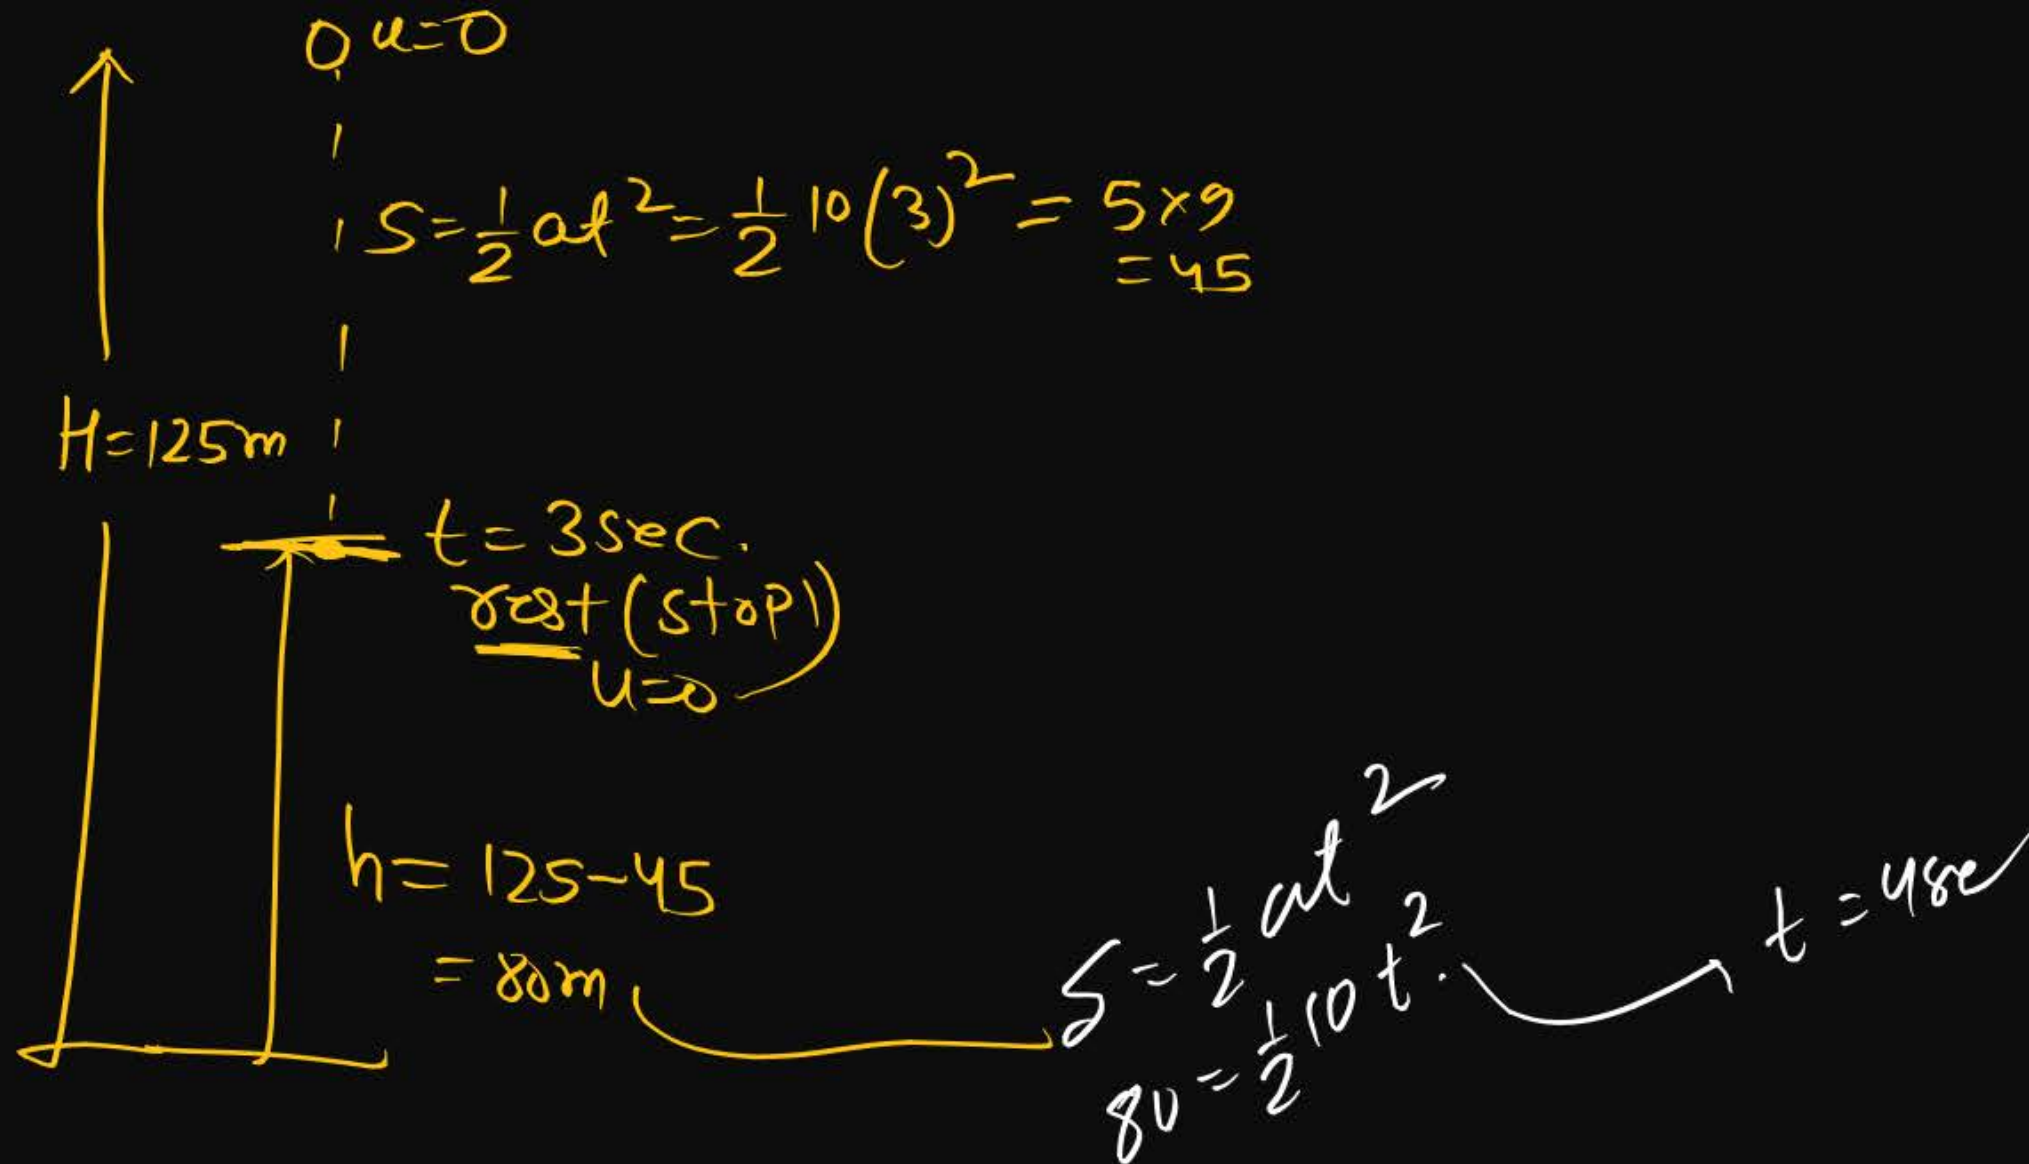 u=0
S=½at²=½10(3)²=5×9
=45
H=125m
t=3sec.
rest (stop)
u=0
h=125-45
=80m
S=½at²
80=½10t².
t=4sec